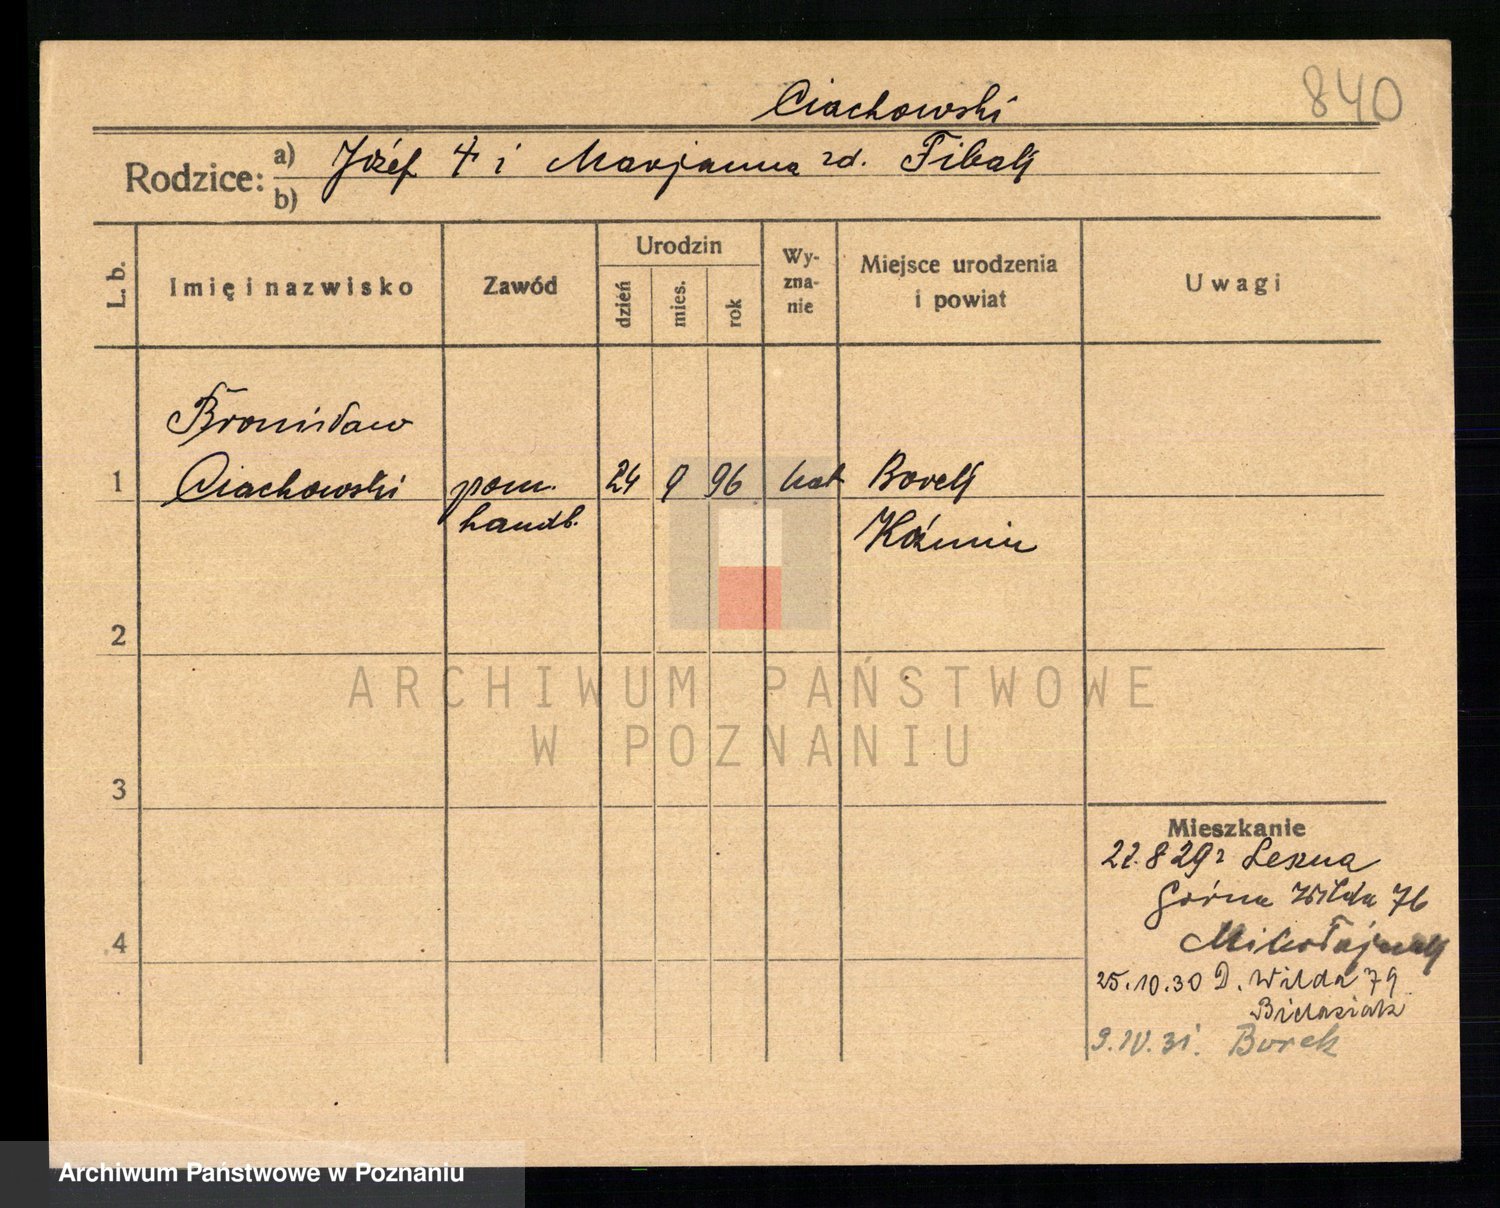 840
Ciachowski
Rodzice: a) Józef i Marjanna zd. Tibak
b)
L. b. Imię i nazwisko Zawód Urodzin dzień mies. rok Wy-zna-nie Miejsce urodzenia i powiat Uwagi
Bronisław
1 Ciachowski pom. 24 9 96 kat Borek
handl. Koźmin
2
ARCHIWUM PAŃSTWOWE
W POZNANIU
3
Mieszkanie
22.8 29 z Leszna
Górna Wilda 76
4
25.10.30 D. Wilda 79
9.IV.31. Borek
Archiwum Państwowe w Poznaniu